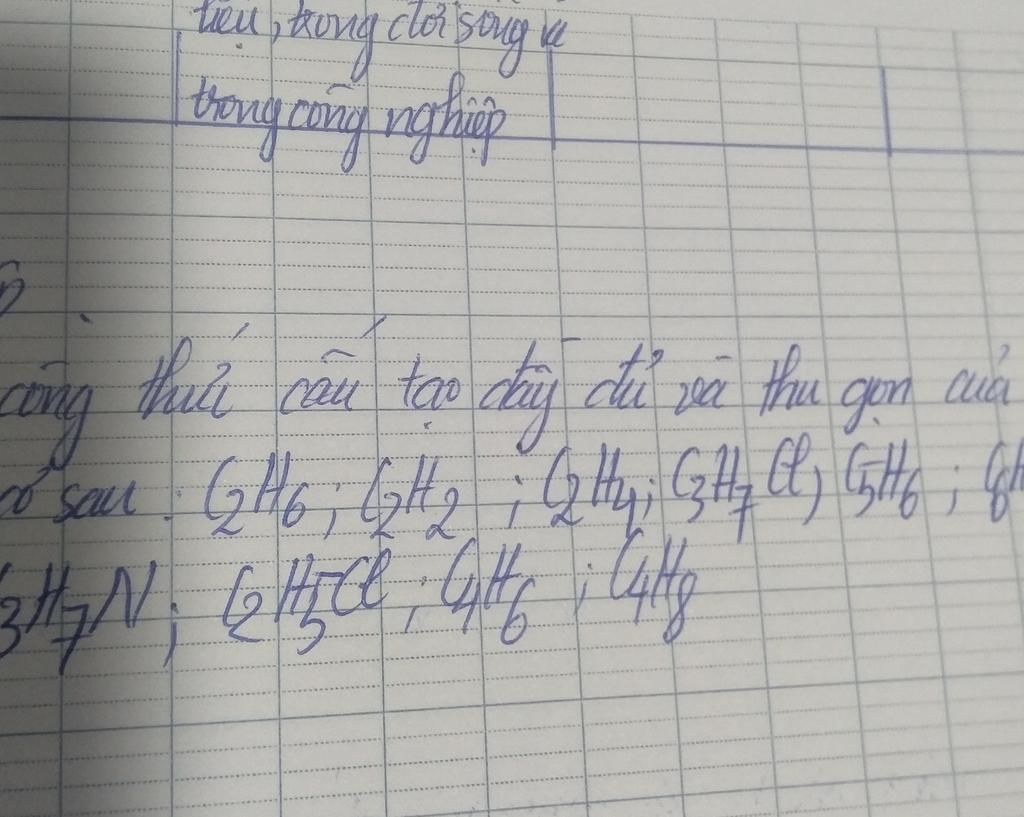 tiêu, trong đời sống và
trong công nghiệp
công thức cấu tạo đầy đủ và thu gọn của
có sau: C2H6; C2H2; C2H4; C3H7Cl; C5H6; C6H
3H7N; C2H5Cl; C4H6; C4H8